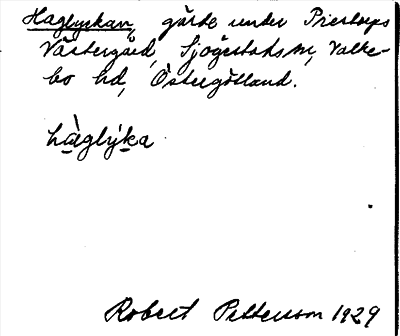 Haglyckan, gärde under Prestorps
Västergård, Sjögestads sn, Valke-
bo hd, Östergötland.
hàglýka
Robert Pettersson 1929